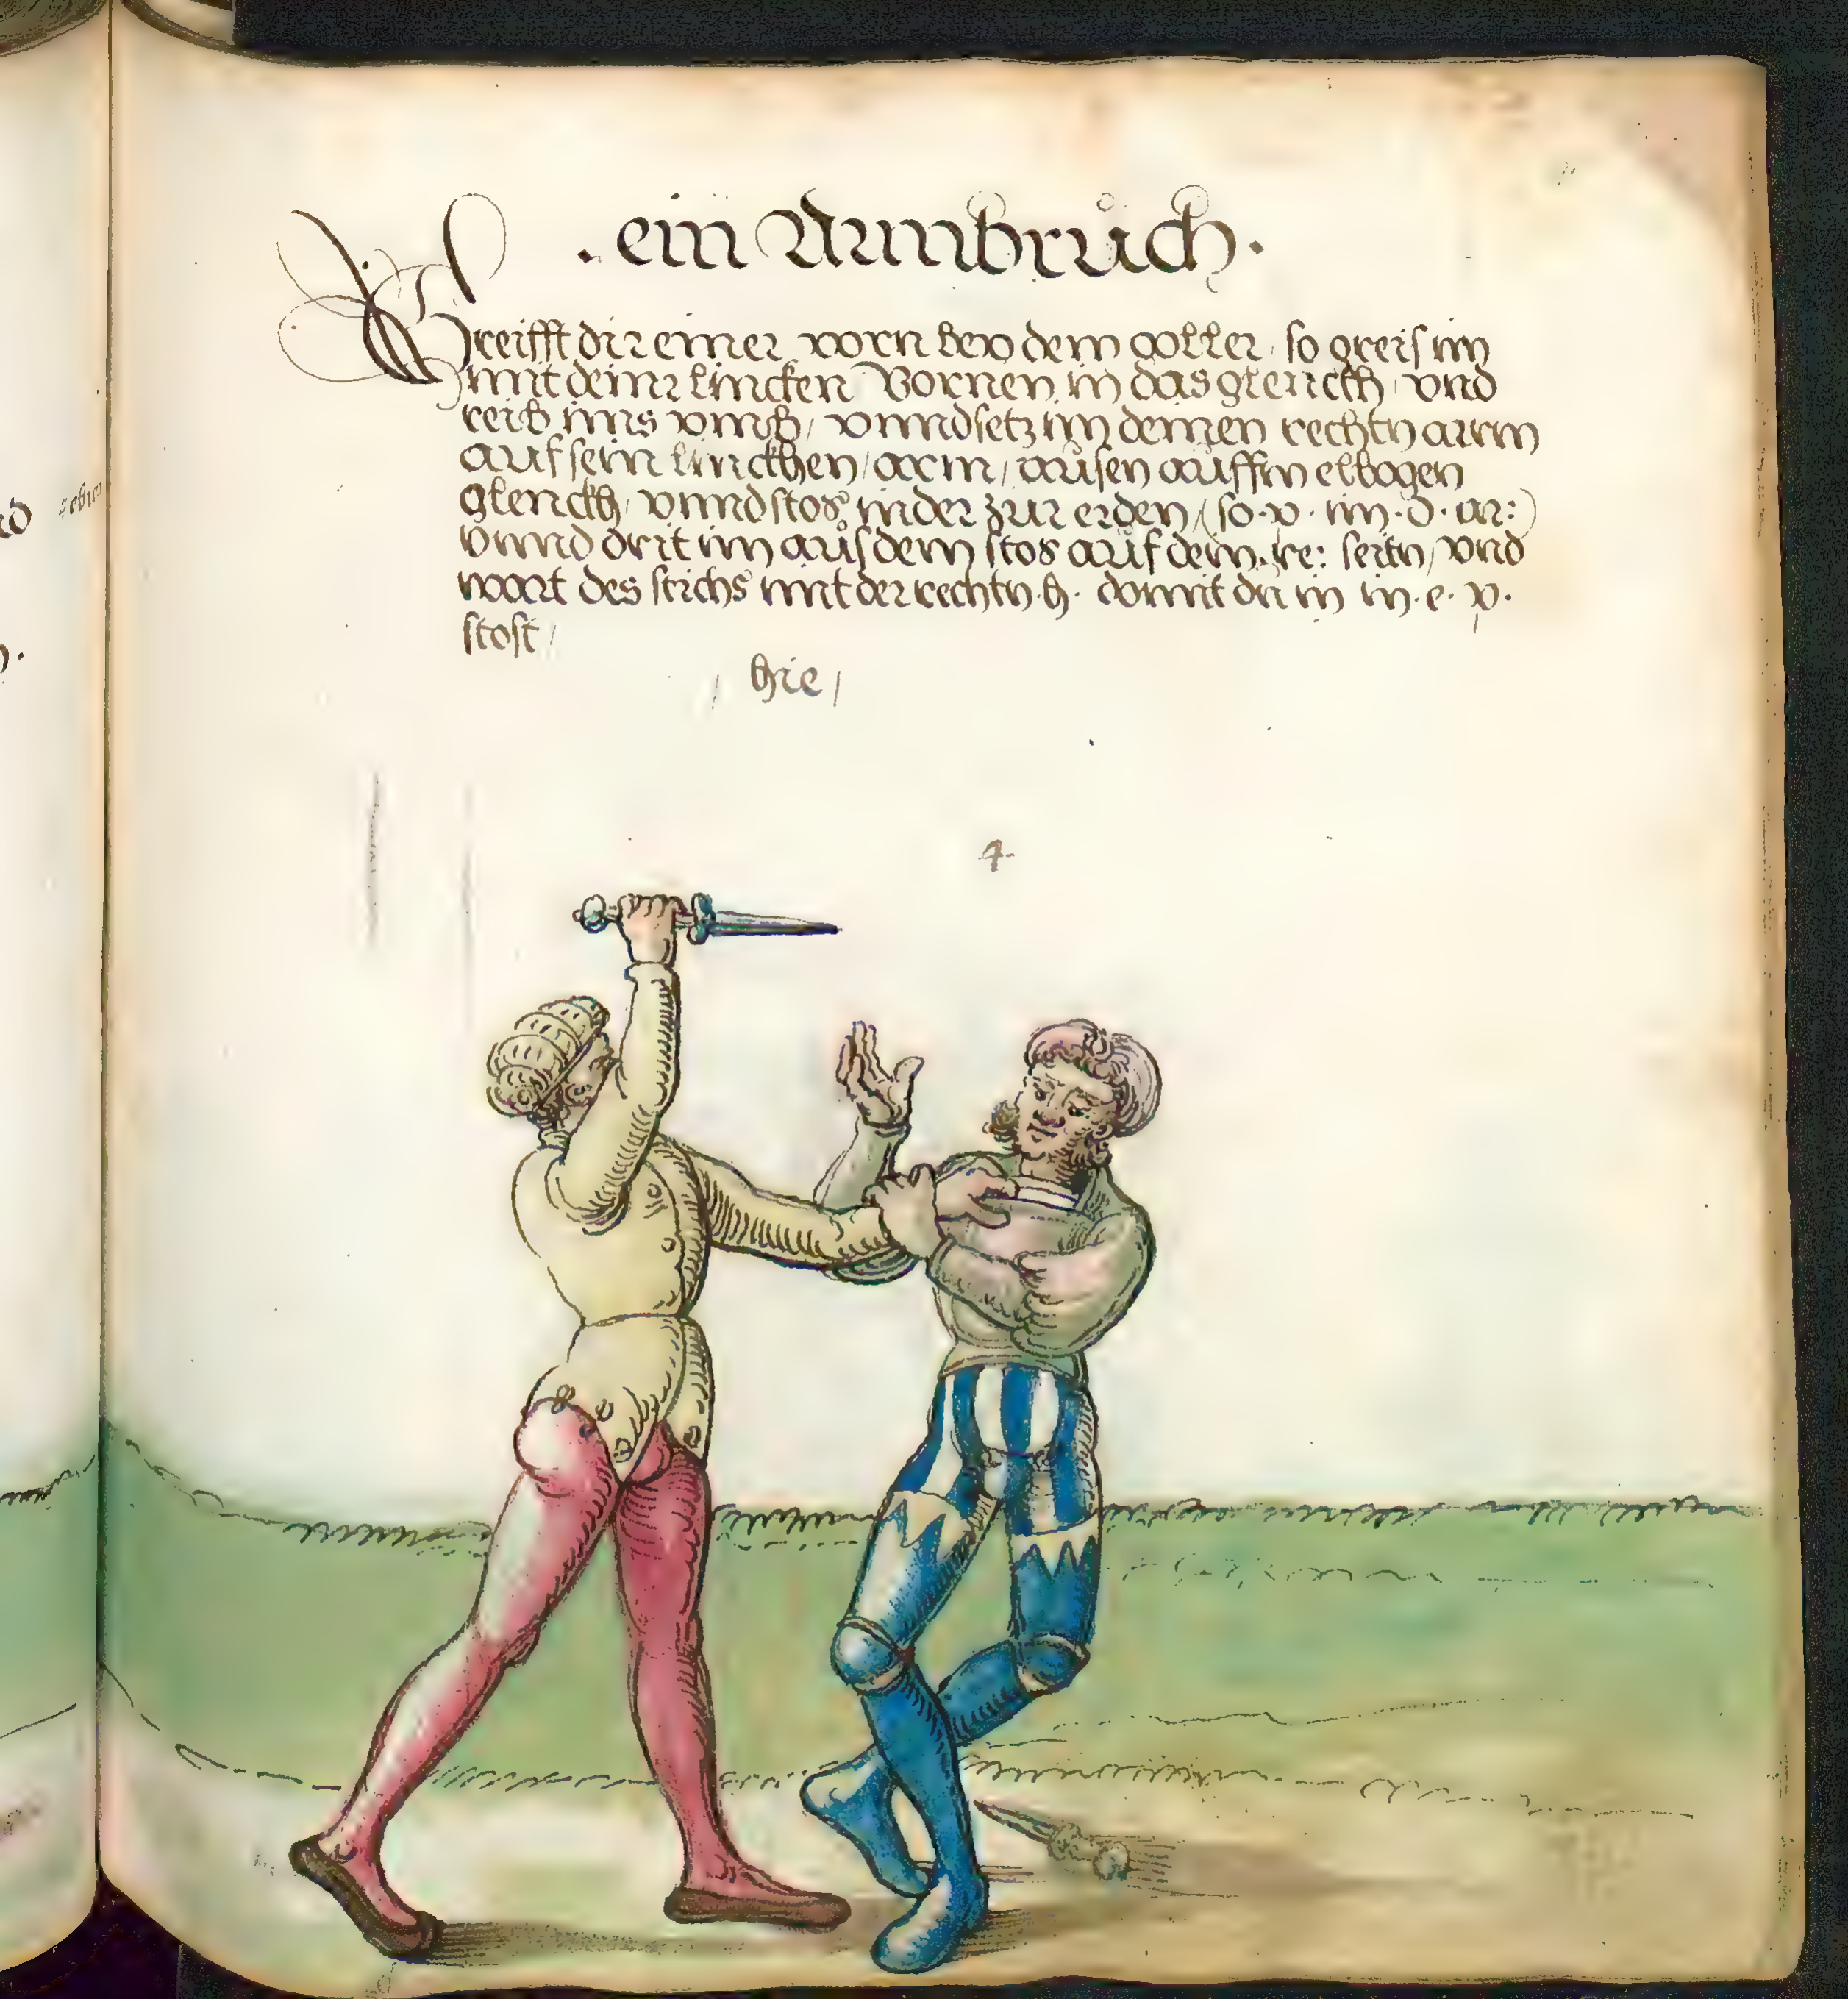 . ein Armbrůch .
Greifft dir einer vorn bey dem goller / so greif im
mit deiner lincken Vornen in das glenckh / vnd
reib ims vmb / vnnd setz im deinen rechtn arm
auf sein linckhen / arm / aůsen aůffm elbogen
glenckh / vnnd stos in der zur erden / (so . v . im . d . ar:)
vnnd drit im aůs dem stos aůf dein . re: seitn / vnd
wart des stichs mit der rechtn . h . domit du in in . e . v .
stost /
/ hie /
4